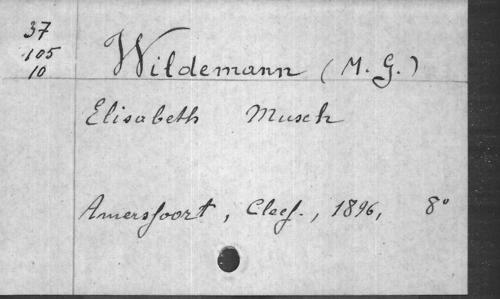 37
105
10
Wildemann (M. G.)
Elisabeth Musch
Amersfoort, Cleef., 1896, 8°